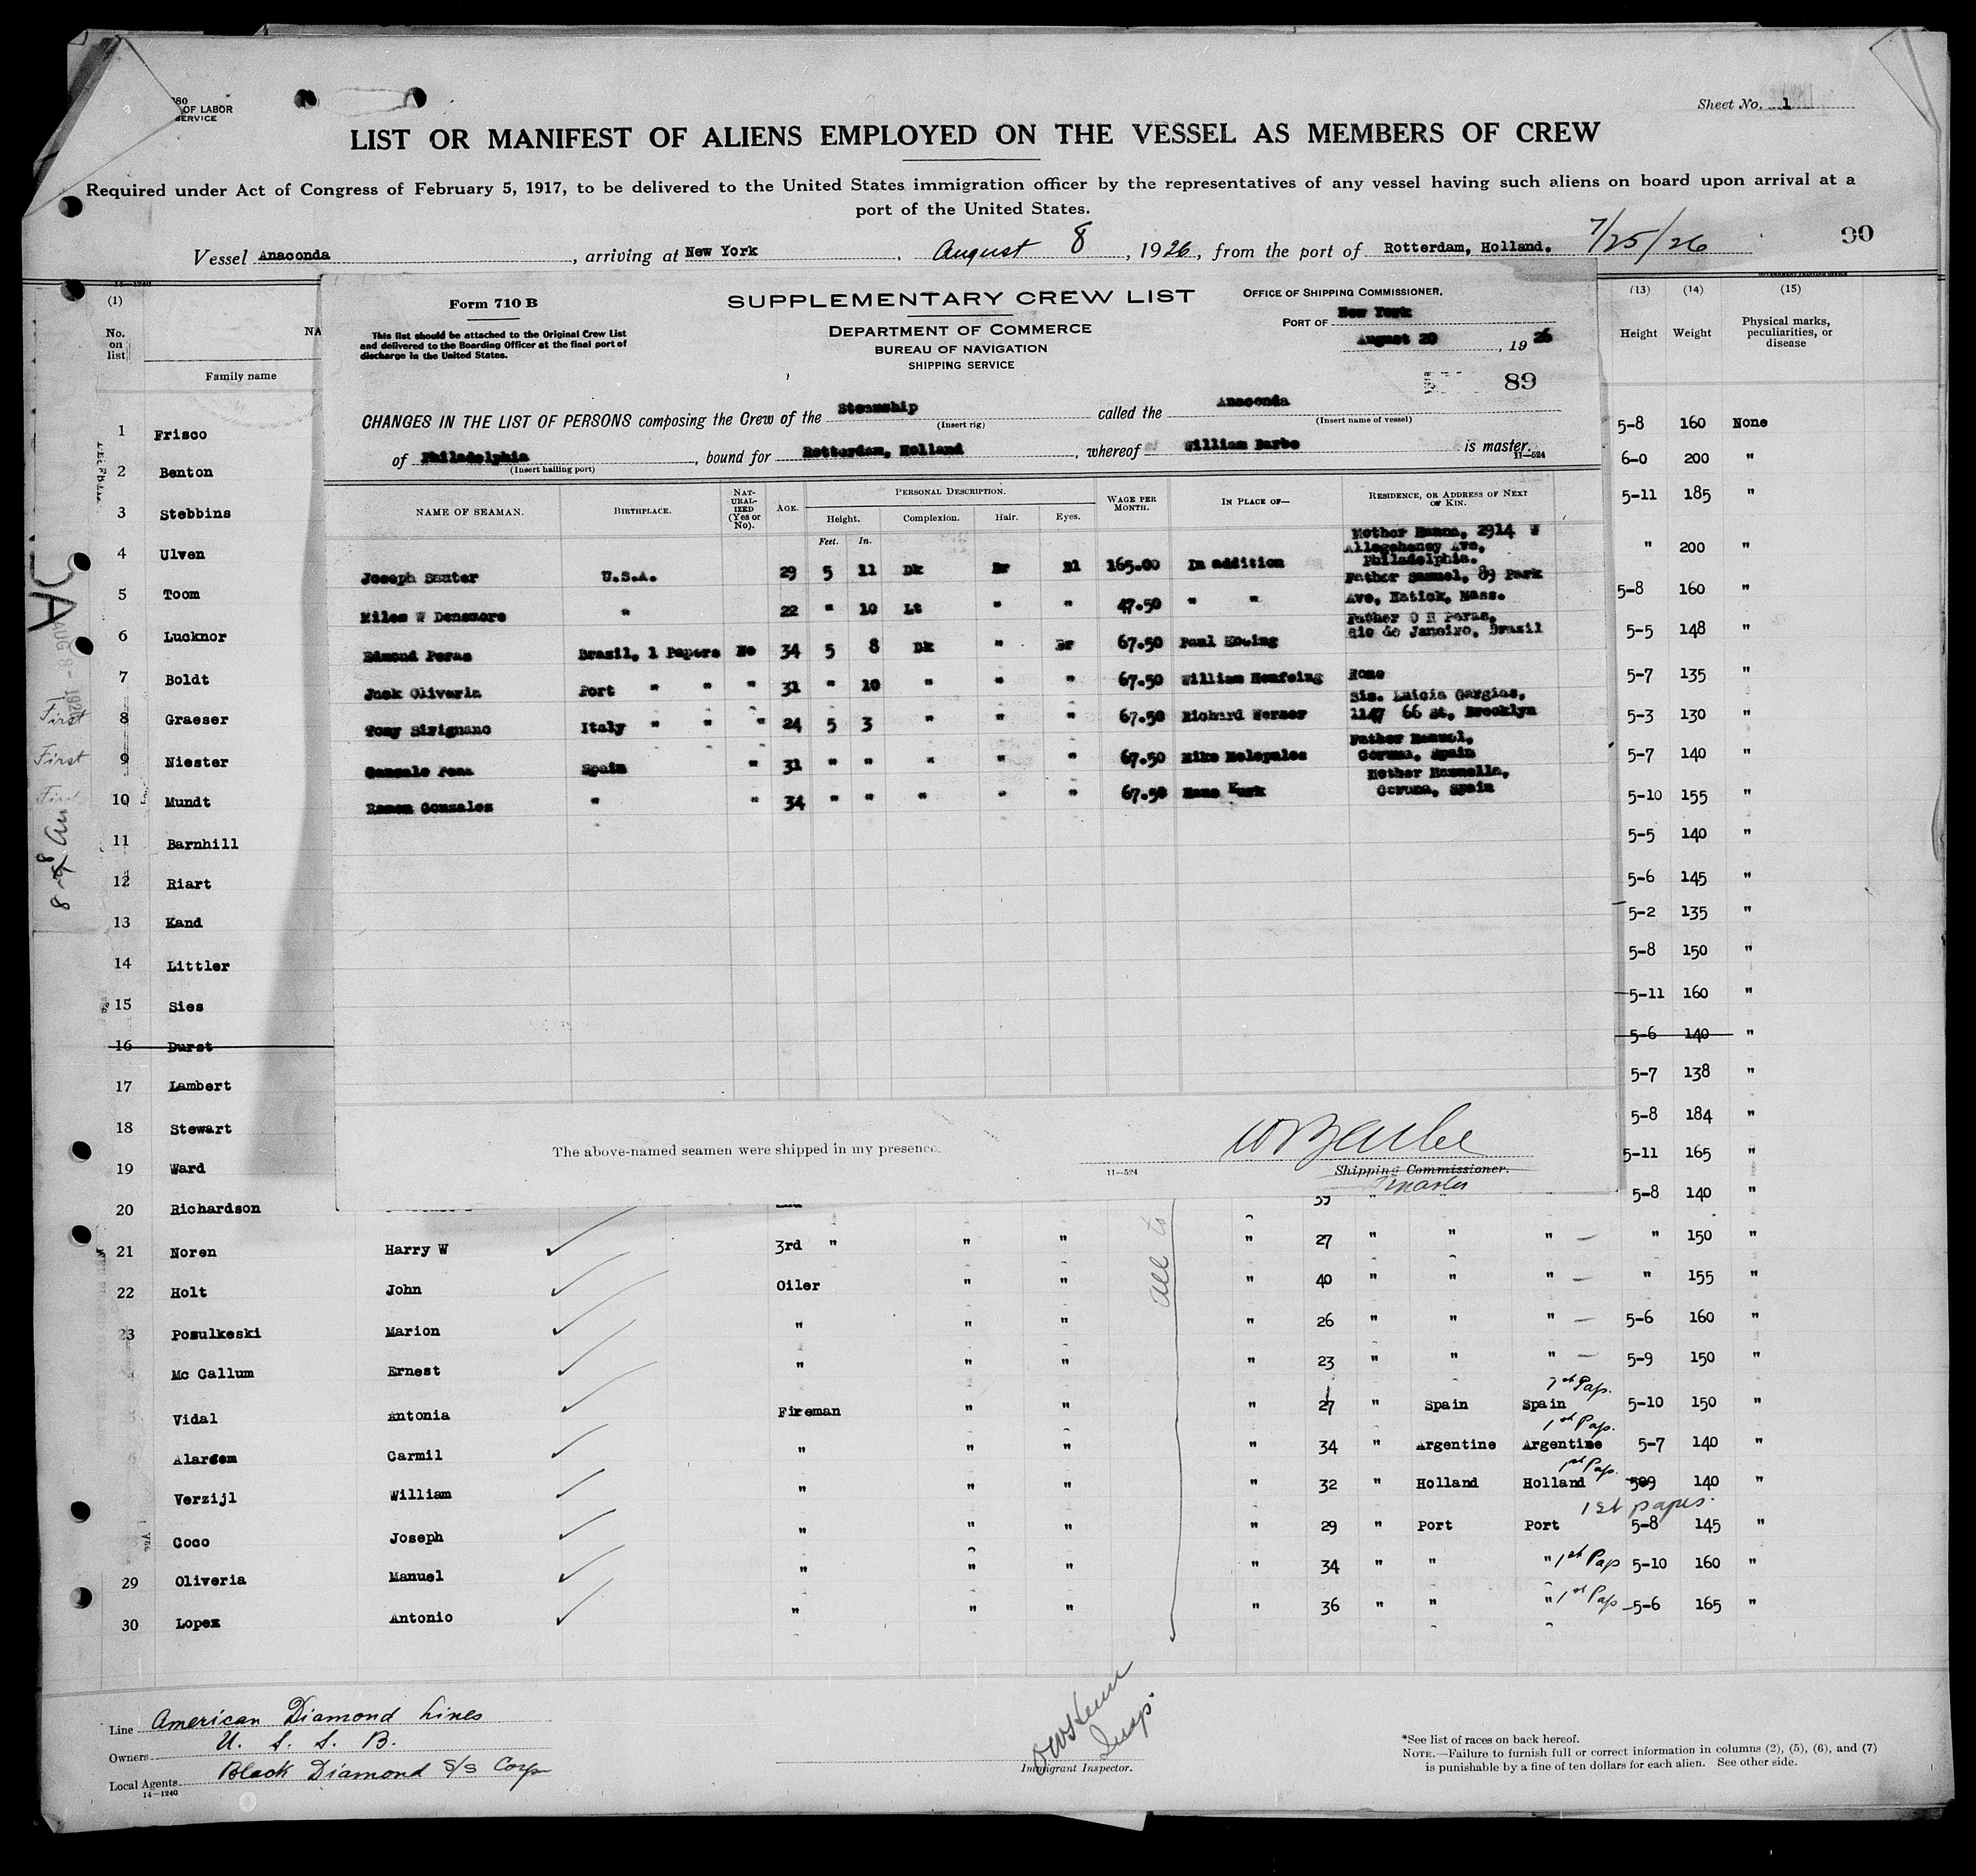 OF LABOR
SERVICE
Sheet No. 1
LIST OR MANIFEST OF ALIENS EMPLOYED ON THE VESSEL AS MEMBERS OF CREW
Required under Act of Congress of February 5, 1917, to be delivered to the United States immigration officer by the representatives of any vessel having such aliens on board upon arrival at a
port of the United States.
Vessel Anaconda, arriving at New York, August 8, 1926, from the port of Rotterdam, Holland. 7/25/26 90
Form 710 B
This list should be attached to the Original Crew List
and delivered to the Boarding Officer at the final port of
discharge in the United States.
SUPPLEMENTARY CREW LIST
DEPARTMENT OF COMMERCE
BUREAU OF NAVIGATION
SHIPPING SERVICE
OFFICE OF SHIPPING COMMISSIONER,
PORT OF New York
August 20, 1926
89
CHANGES IN THE LIST OF PERSONS composing the Crew of the Steamship called the Anaconda
(Insert rig) (Insert name of vessel)
of Philadelphia, bound for Rotterdam, Holland, whereof William Barbe is master.
(Insert hailing port) 11—524
NAME OF SEAMAN. BIRTHPLACE. NATURALIZED (Yes or No). AGE. PERSONAL DESCRIPTION. WAGE PER MONTH. IN PLACE OF— RESIDENCE, OR ADDRESS OF NEXT OF KIN.
Height. Complexion. Hair. Eyes.
Feet. In.
Joseph Sauter U.S.A. 29 5 11 Dk Br Bl 165.00 In addition Mother Hanna, 2914 W Allegeheney Ave, Philadelphia.
Miles W Densmore " 22 " 10 Lt " " 47.50 " " Father Samuel, 89 Park Ave, Natick, Mass.
Edmond Peras Brazil, 1 Papers No 34 5 8 Dk " Br 67.50 Paul Father O H Peras, Rio de Janeiro, Brazil
Jack Oliveria Port " " " 31 " 10 " " " 67.50 William None
Tony Sirignano Italy " " " 24 5 3 " " " 67.50 Richard Werner Sis. Luicia Gargias, 1147 66 St, Brooklyn
Gonzalo Pena Spain " 31 " " " " " 67.50 Mike Father Manuel, Coruna, Spain
Ramon Gonzales " " 34 " " " " " 67.50 Hans Kurk Mother Coruna, Spain
The above-named seamen were shipped in my presence.
11—524
W Barbe
Shipping Commissioner.
Master
(1) (13) (14) (15)
No. on list Family name Height Weight Physical marks, peculiarities, or disease
1 Frisco 5-8 160 None
2 Benton 6-0 200 "
3 Stebbins 5-11 185 "
4 Ulven " 200 "
5 Toom 5-8 160 "
6 Lucknor 5-5 148 "
7 Boldt 5-7 135 "
First 8 Graeser 5-3 130 "
First 9 Niester 5-7 140 "
10 Mundt 5-10 155 "
11 Barnhill 5-5 140 "
12 Riart 5-6 145 "
13 Kand 5-2 135 "
14 Littler 5-8 150 "
15 Sies 5-11 160 "
16 Durst 5-6 140 "
17 Lambert 5-7 138 "
18 Stewart 5-8 184 "
19 Ward 5-11 165 "
20 Richardson 5-8 140 "
21 Noren Harry W 3rd " " " " 27 " " " " 150 "
22 Holt John Oiler " " " 40 " " " " 155 "
23 Posulkeski Marion " " " " 26 " " " 5-6 160 "
Mc Callum Ernest " " " " 23 " " " 5-9 150 "
Vidal Antonia Fireman " " " 27 " Spain Spain 1st Pap. 5-10 150 "
Alarcem Carmil " " " " 34 " Argentine Argentine 1st Pap. 5-7 140 "
Verzijl William " " " " 32 " Holland Holland 1st Pap. 5-9 140 "
Coco Joseph " " " " 29 " Port Port 1st papes. 5-8 145 "
29 Oliveria Manuel " " " " 34 " " " 1st Pap 5-10 160 "
30 Lopez Antonio " " " " 36 " " " 1st Pap 5-6 165 "
all to
AUG 8 - 1926
Line American Diamond Lines
Owners U. S. S. B.
Local Agents Black Diamond S/S Corp
14—1240
Insp.
Immigrant Inspector.
*See list of races on back hereof.
NOTE.—Failure to furnish full or correct information in columns (2), (5), (6), and (7)
is punishable by a fine of ten dollars for each alien. See other side.